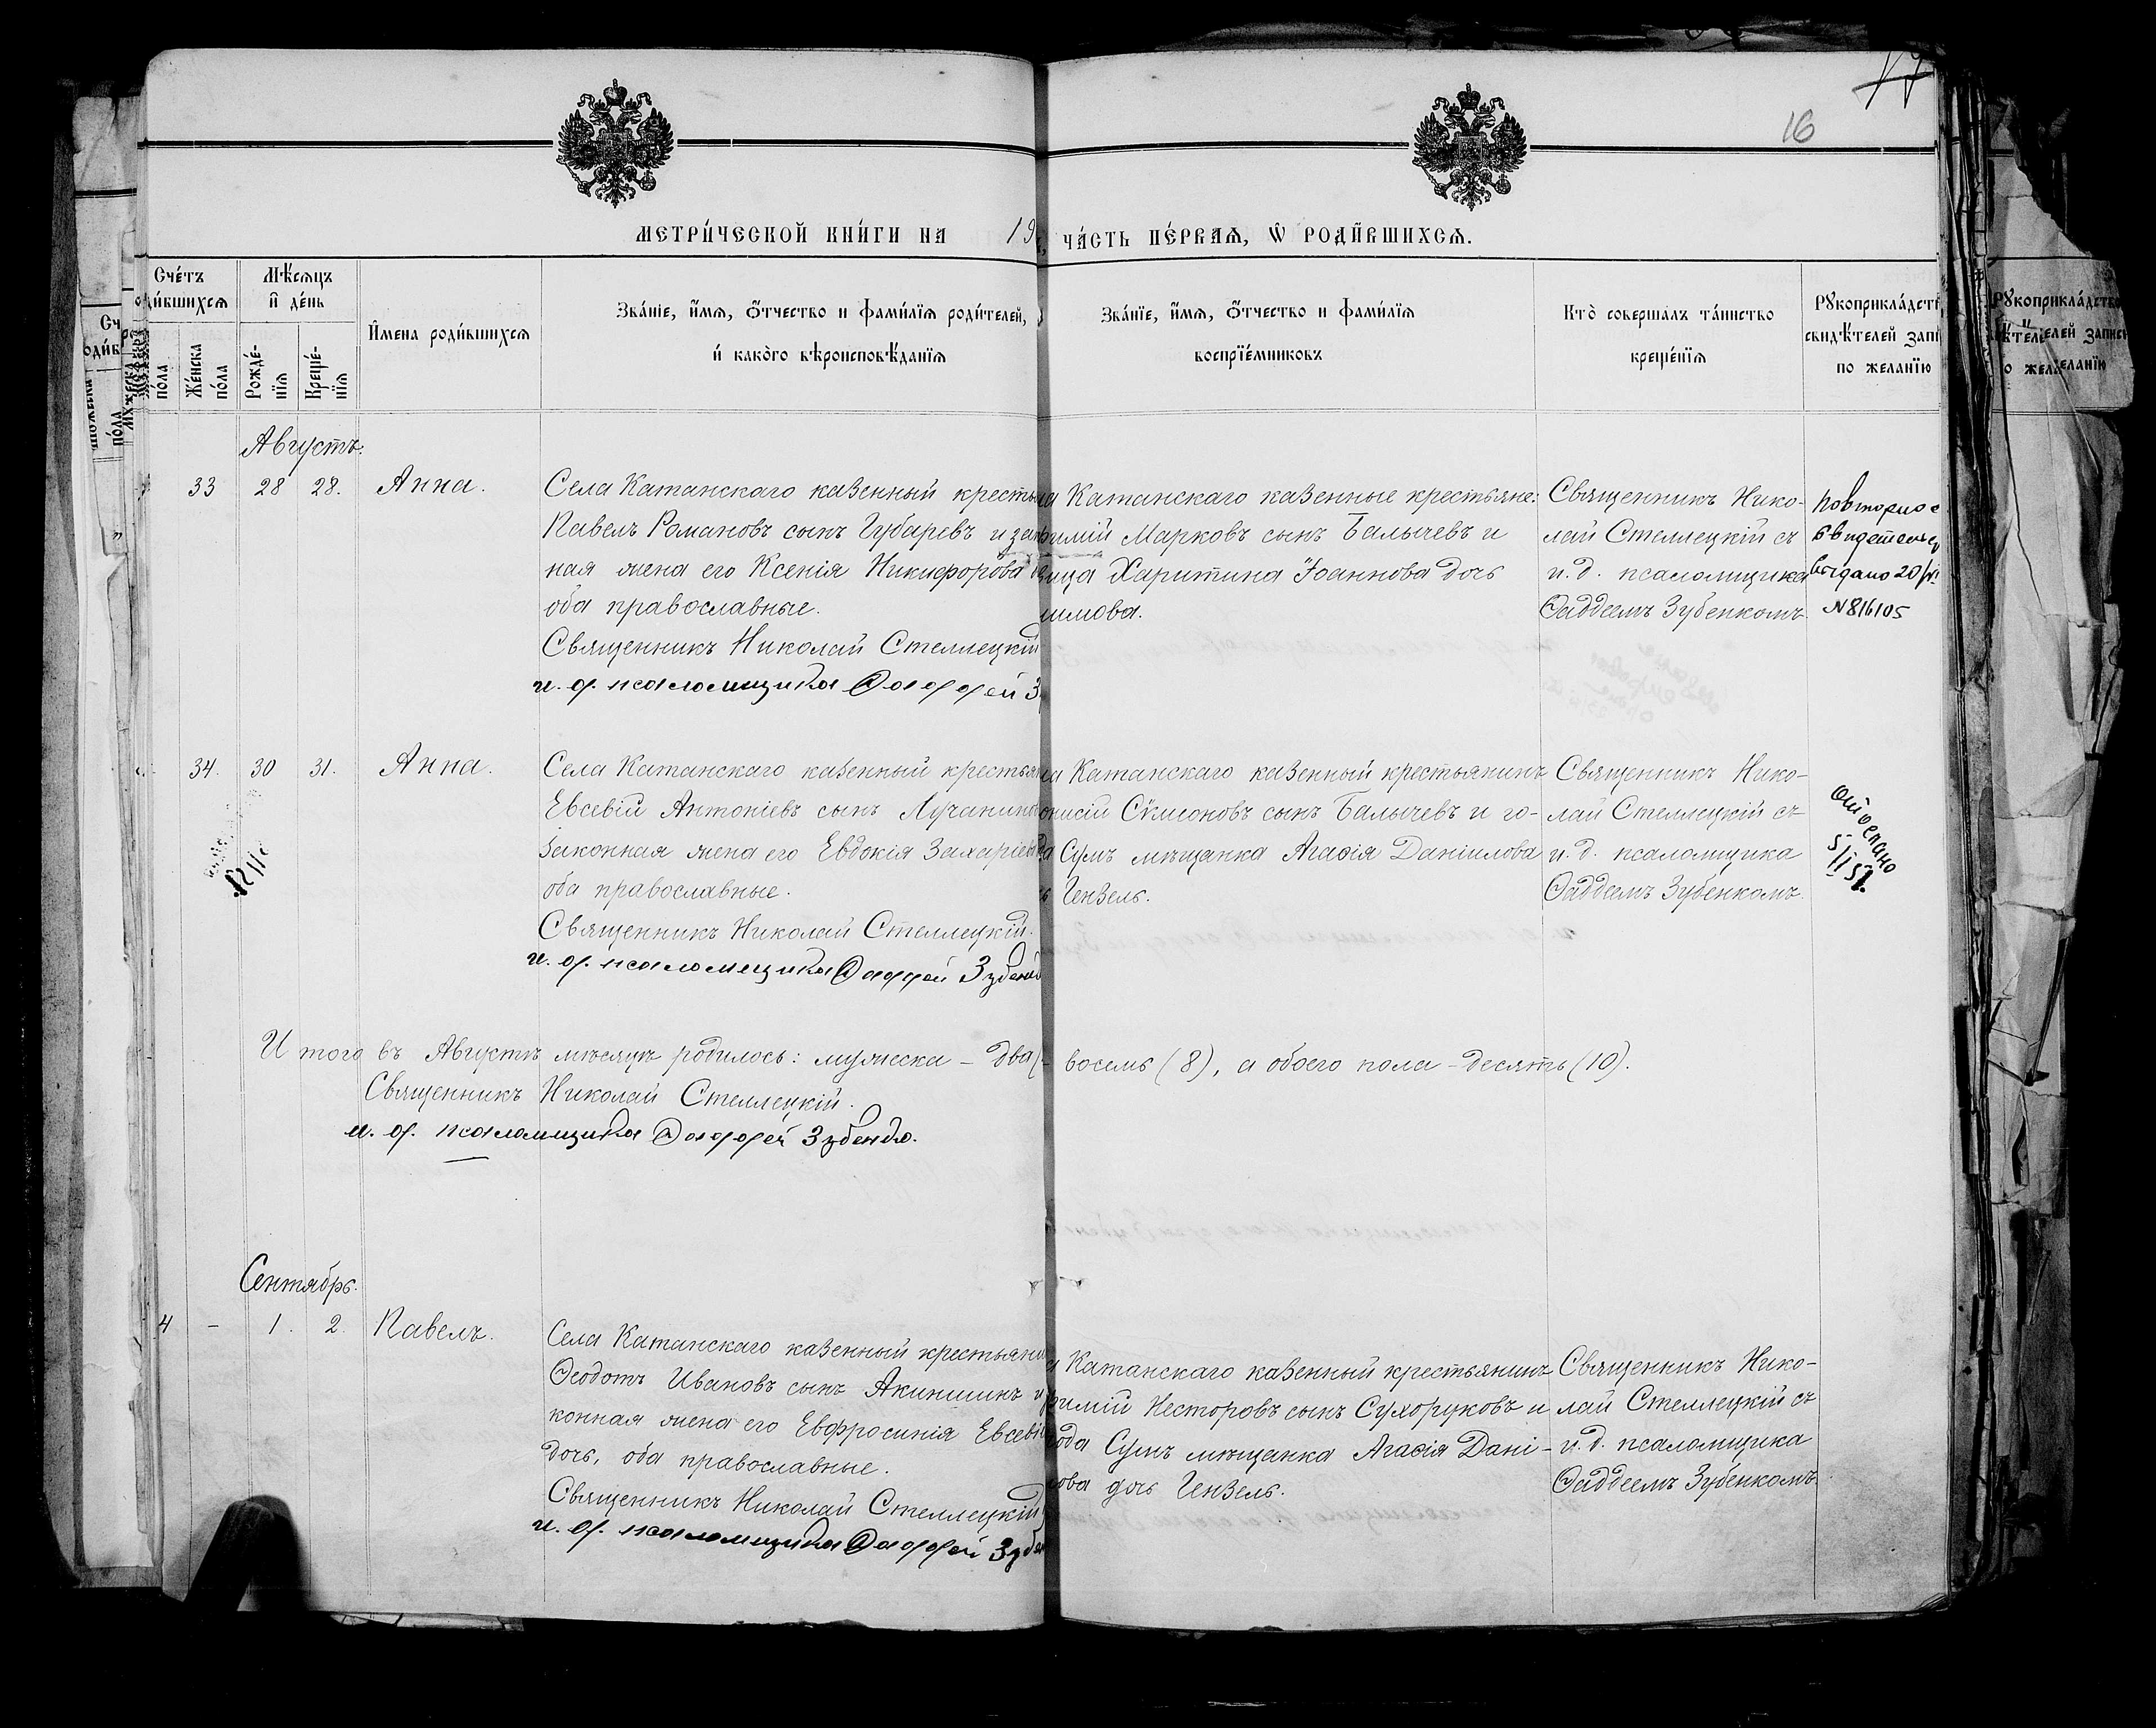 16
МЕТРИ́ЧЕСКОЙ КНИ́ГИ НА 19
ЧА́СТЬ ПЕ́РВАѦ, Ѡ҆ РОДИ́ВШИХСѦ.
Сче́тъ
оди́вшихсѧ
Мѣ́сѧцъ
и҆ де́нь
по́ла
Же́нска
по́ла
Рожде́-
нїѧ
Креще́-
нїѧ
И҆мена роди́вшихсѧ
Зва́нїе, и҆́мѧ, ѻ҆́тчество и фами́лїѧ роди́телей,
и҆ како́гѡ вѣроисповѣ́данїѧ
Зва́нїе, и҆́мѧ, ѻ҆́тчество и фами́лїѧ
воспрїе́мниковъ
Кто̀ соверша́лъ та́инство
креще́нїѧ
Рꙋкоприкла́дст
свидѣ́телей запи
по желанїю
Августъ.
33 28 28. Анна.
Села Катанскаго казенный кресть
Павелъ Романовъ сынъ Губаревъ и зак
ная жена его Ксенія Никифорова
оба православные.
Священникъ Николай Стеллецкій
и. д. псаломщика Ѳаддей З
Катанскаго казенные крестьяне:
фимій Марковъ сынъ Балычевъ и
вица Харитина Іоаннова дочь
имова.
Священникъ Нико-
лай Стеллецкій съ
и. д. псаломщика
Ѳаддеемъ Зубенкомъ.
Повторно с
видетель
выдано 20/VI
N 816105
34. 30 31. Анна.
Села Катанскаго казенный крестьян
Евсевій Антоніевъ сынъ Лучанин
законная жена его Евдокія Захаріев
оба православные.
Священникъ Николай Стеллецкій.
и. д. псаломщика Ѳаддей Зубенко
Катанскаго казенный крестьянинъ
онисій Сѵмеоновъ сынъ Балычевъ и го-
да Сумъ мѣщанка Агаѳія Даніилова
Гензель.
Священникъ Нико-
лай Стеллецкій съ
и. д. псаломщика
Ѳаддеемъ Зубенкомъ.
5/I 51.
Итого въ Августѣ мѣсяцѣ родилось: мужеска - два
восемь (8), а обоего пола - десять (10).
Священникъ Николай Стеллецкій.
и. д. псаломщика Ѳаддей Зубенко.
Сентябрь.
4 - 1. 2. Павелъ.
Села Катанскаго казенный крестьяни
Ѳеодотъ Ивановъ сынъ Акиншинъ и
конная жена его Евфросинія Евсеві
дочь, оба православные.
Священникъ Николай Стеллецкій
и. д. псаломщика Ѳаддей Зубен
Катанскаго казенный крестьянинъ
фимій Несторовъ сынъ Сухоруковъ и
рода Сумъ мѣщанка Агаѳія Дані-
лова дочь Гензель.
Священникъ Нико-
лай Стеллецкій съ
и. д. псаломщика
Ѳаддеемъ Зубенкомъ